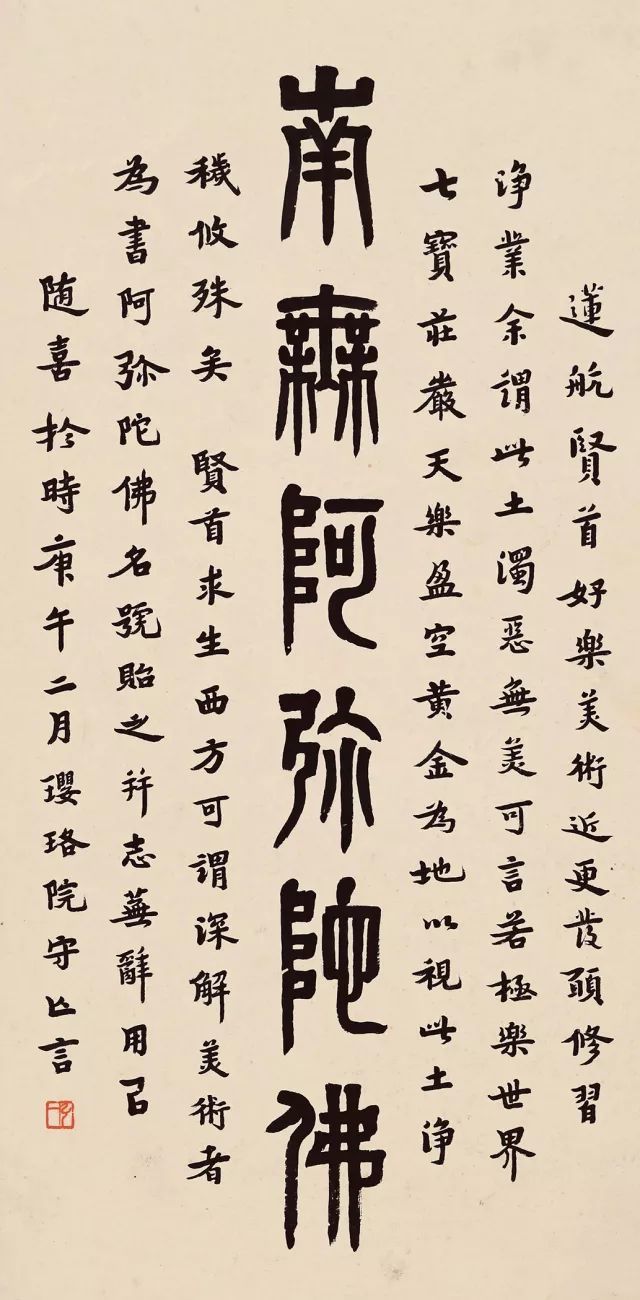 蓮航賢首好樂美術近更發願修習
淨業余謂此土濁惡無美可言若極樂世界
七寶莊嚴天樂盈空黃金為地以視此土淨
南無阿弥陀佛
穢攸殊矣 賢首求生西方可謂深解美術者
為書阿弥陀佛名號貽之并志蕪辭用㠯
随喜於時庚午二月瓔珞院守亾言